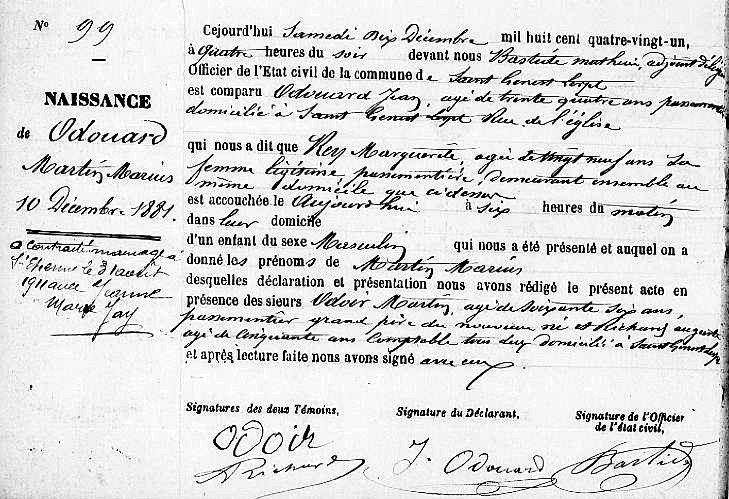 N° 99
NAISSANCE
de Odouard
Martin Marius
10 Décembre 1881.
a contracté mariage à
St Etienne le 31 août
1911 avec Jeanne
Marie Fay
Cejourd'hui Samedi Dix Décembre mil huit cent quatre-vingt-un,
à quatre heures du soir devant nous Bastide mathieu, adjoint délégué
Officier de l'Etat civil de la commune de Saint Genest Lerpt
est comparu Odouard Jean, agé de trente quatre ans passementier
domicilié à Saint Genest Lerpt Rue de l'église
qui nous a dit que Rey Marguerite, agée de vingt neuf ans sa
femme légitime, passementière, demeurant ensemble au
même domicile que ci dessus
est accouchée le Aujourd'hui à six heures du matin
dans leur domicile
d'un enfant du sexe Masculin qui nous a été présenté et auquel on a
donné les prénoms de Martin Marius
desquelles déclaration et présentation nous avons rédigé le présent acte en
présence des sieurs Odoir Martin, agé de soixante six ans,
passementier grand père du nouveau né et Richard auguste
agé de cinquante ans Comptable tous deux domicilié à Saint Genest Lerpt
et après lecture faite nous avons signé avec eux.
Signatures des deux Témoins, Signature du Déclarant, Signature de l'Officier
de l'état civil,
ODOIR J. Odouard Bastide
A Richard